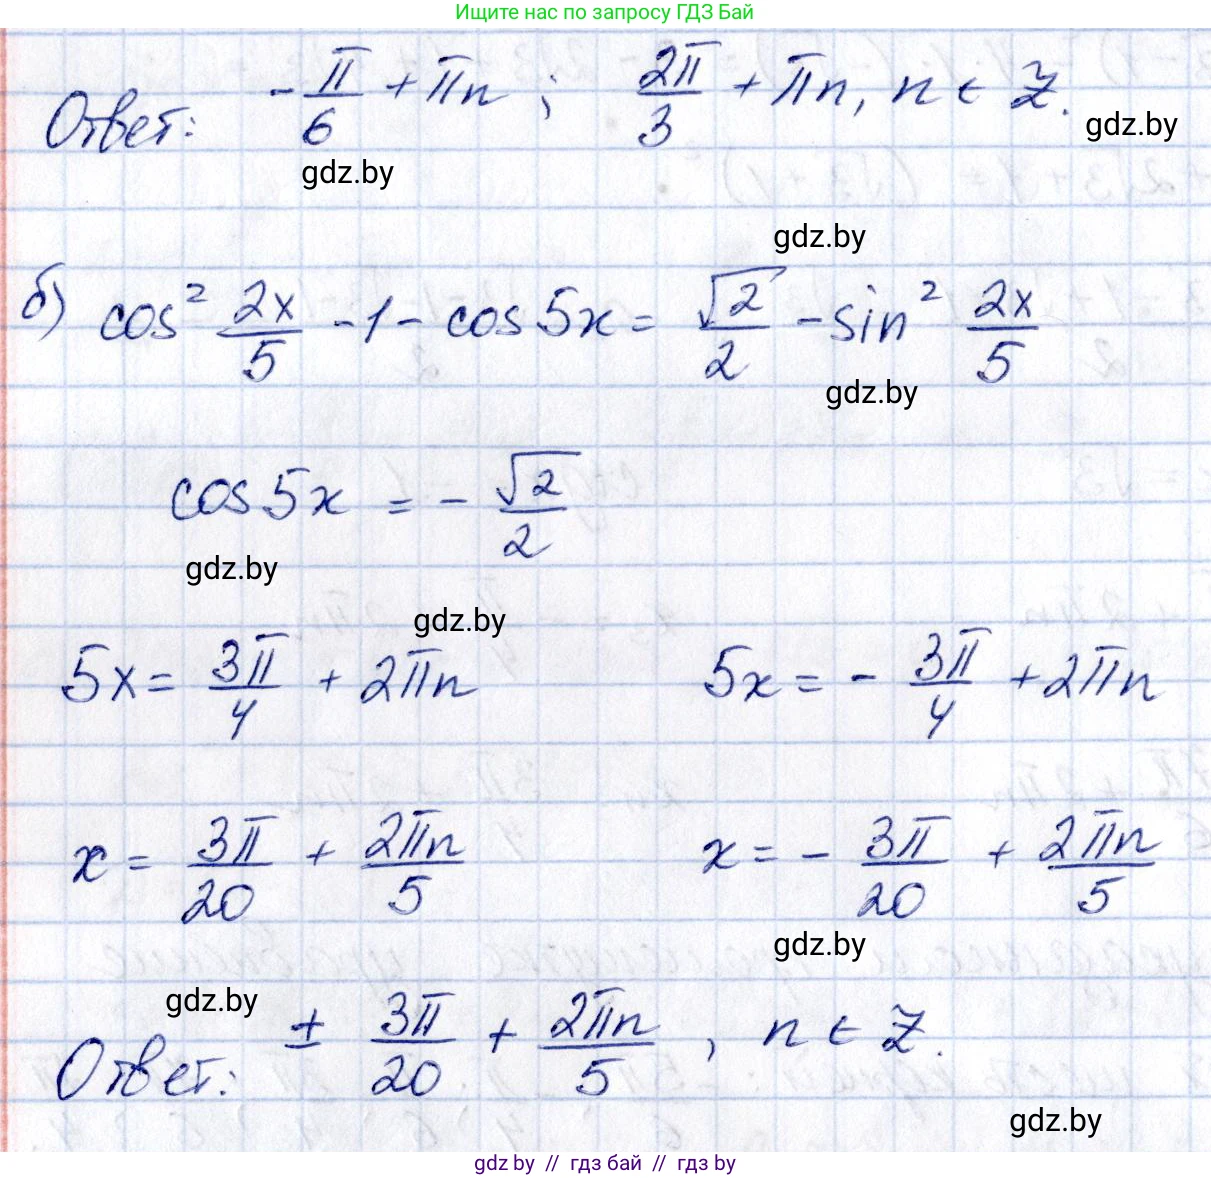 Ищите нас по запросу ГДЗ Бай
Ответ: -π/6 + πn ; 2π/3 + πn, n ∈ Z.
gdz.by
gdz.by
gdz.by
б) cos² 2x/5 - 1 - cos 5x = √2/2 - sin² 2x/5
gdz.by
cos 5x = - √2/2
gdz.by
gdz.by
5x = 3π/4 + 2πn 5x = - 3π/4 + 2πn
x = 3π/20 + 2πn/5 x = - 3π/20 + 2πn/5
gdz.by
gdz.by
Ответ: ± 3π/20 + 2πn/5 , n ∈ Z.
gdz.by
gdz.by // гдз бай // гдз by